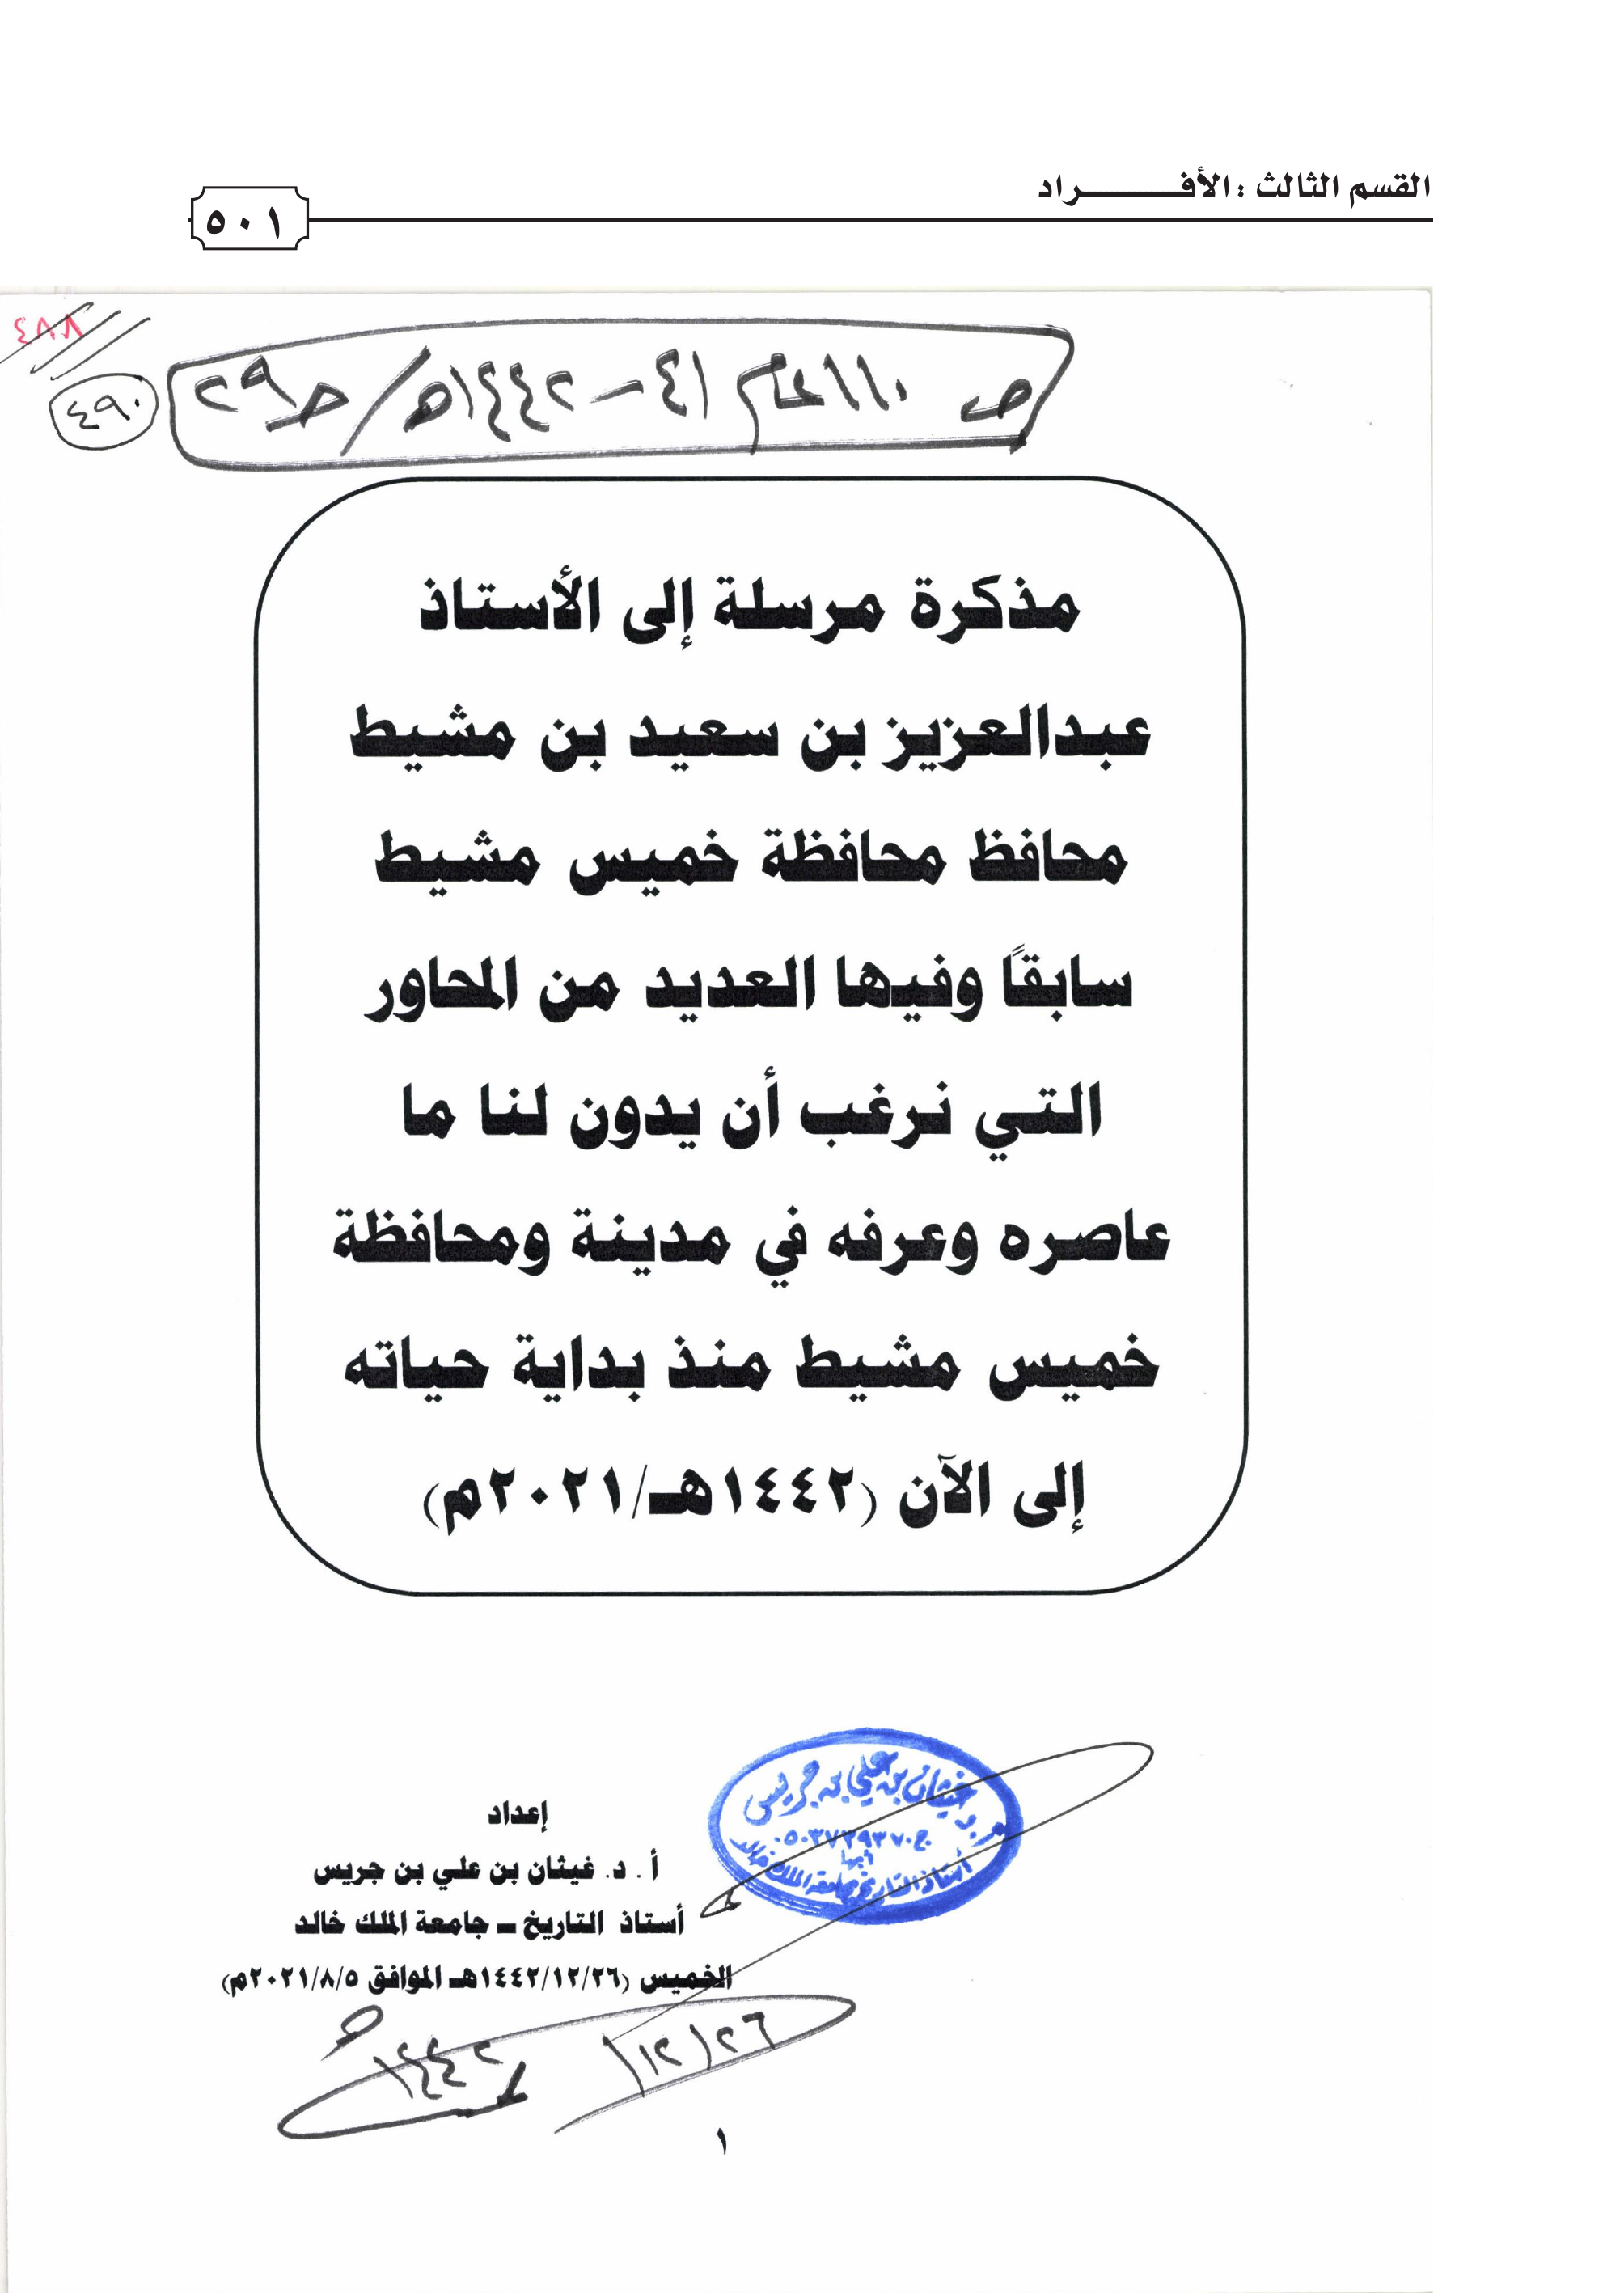 القسم الثالث : الأفـــــــــراد
٥٠١
٤٨٨
٤٩٠
ص ١١٠ عام ٤١ – ١٤٤٢هـ / ح ٢٩
مذكرة مرسلة إلى الأستاذ
عبدالعزيز بن سعيد بن مشيط
محافظ محافظة خميس مشيط
سابقاً وفيها العديد من المحاور
التي نرغب أن يدون لنا ما
عاصره وعرفه في مدينة ومحافظة
خميس مشيط منذ بداية حياته
إلى الآن (١٤٤٢هـ/٢٠٢١م)
غيثان بن علي بن جريس
ج ٠٥٠٣٧٣٩٣٧٠
أبها
أستاذ التاريخ بجامعة الملك خالد
إعداد
أ . د. غيثان بن علي بن جريس
أستاذ التاريخ ـ جامعة الملك خالد
الخميس (١٤٤٢/١٢/٢٦هـ الموافق ٢٠٢١/٨/٥م)
١٤٤٢/١٢/٢٦هـ
١